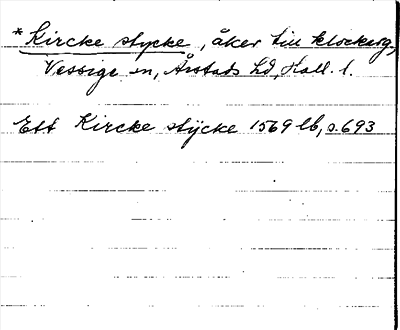 * Kircke stycke, åker till klockareg,
Vessige sn, Årstads hd, Hall. l.
Ett Kircke stÿcke 1569 lb, s. 693